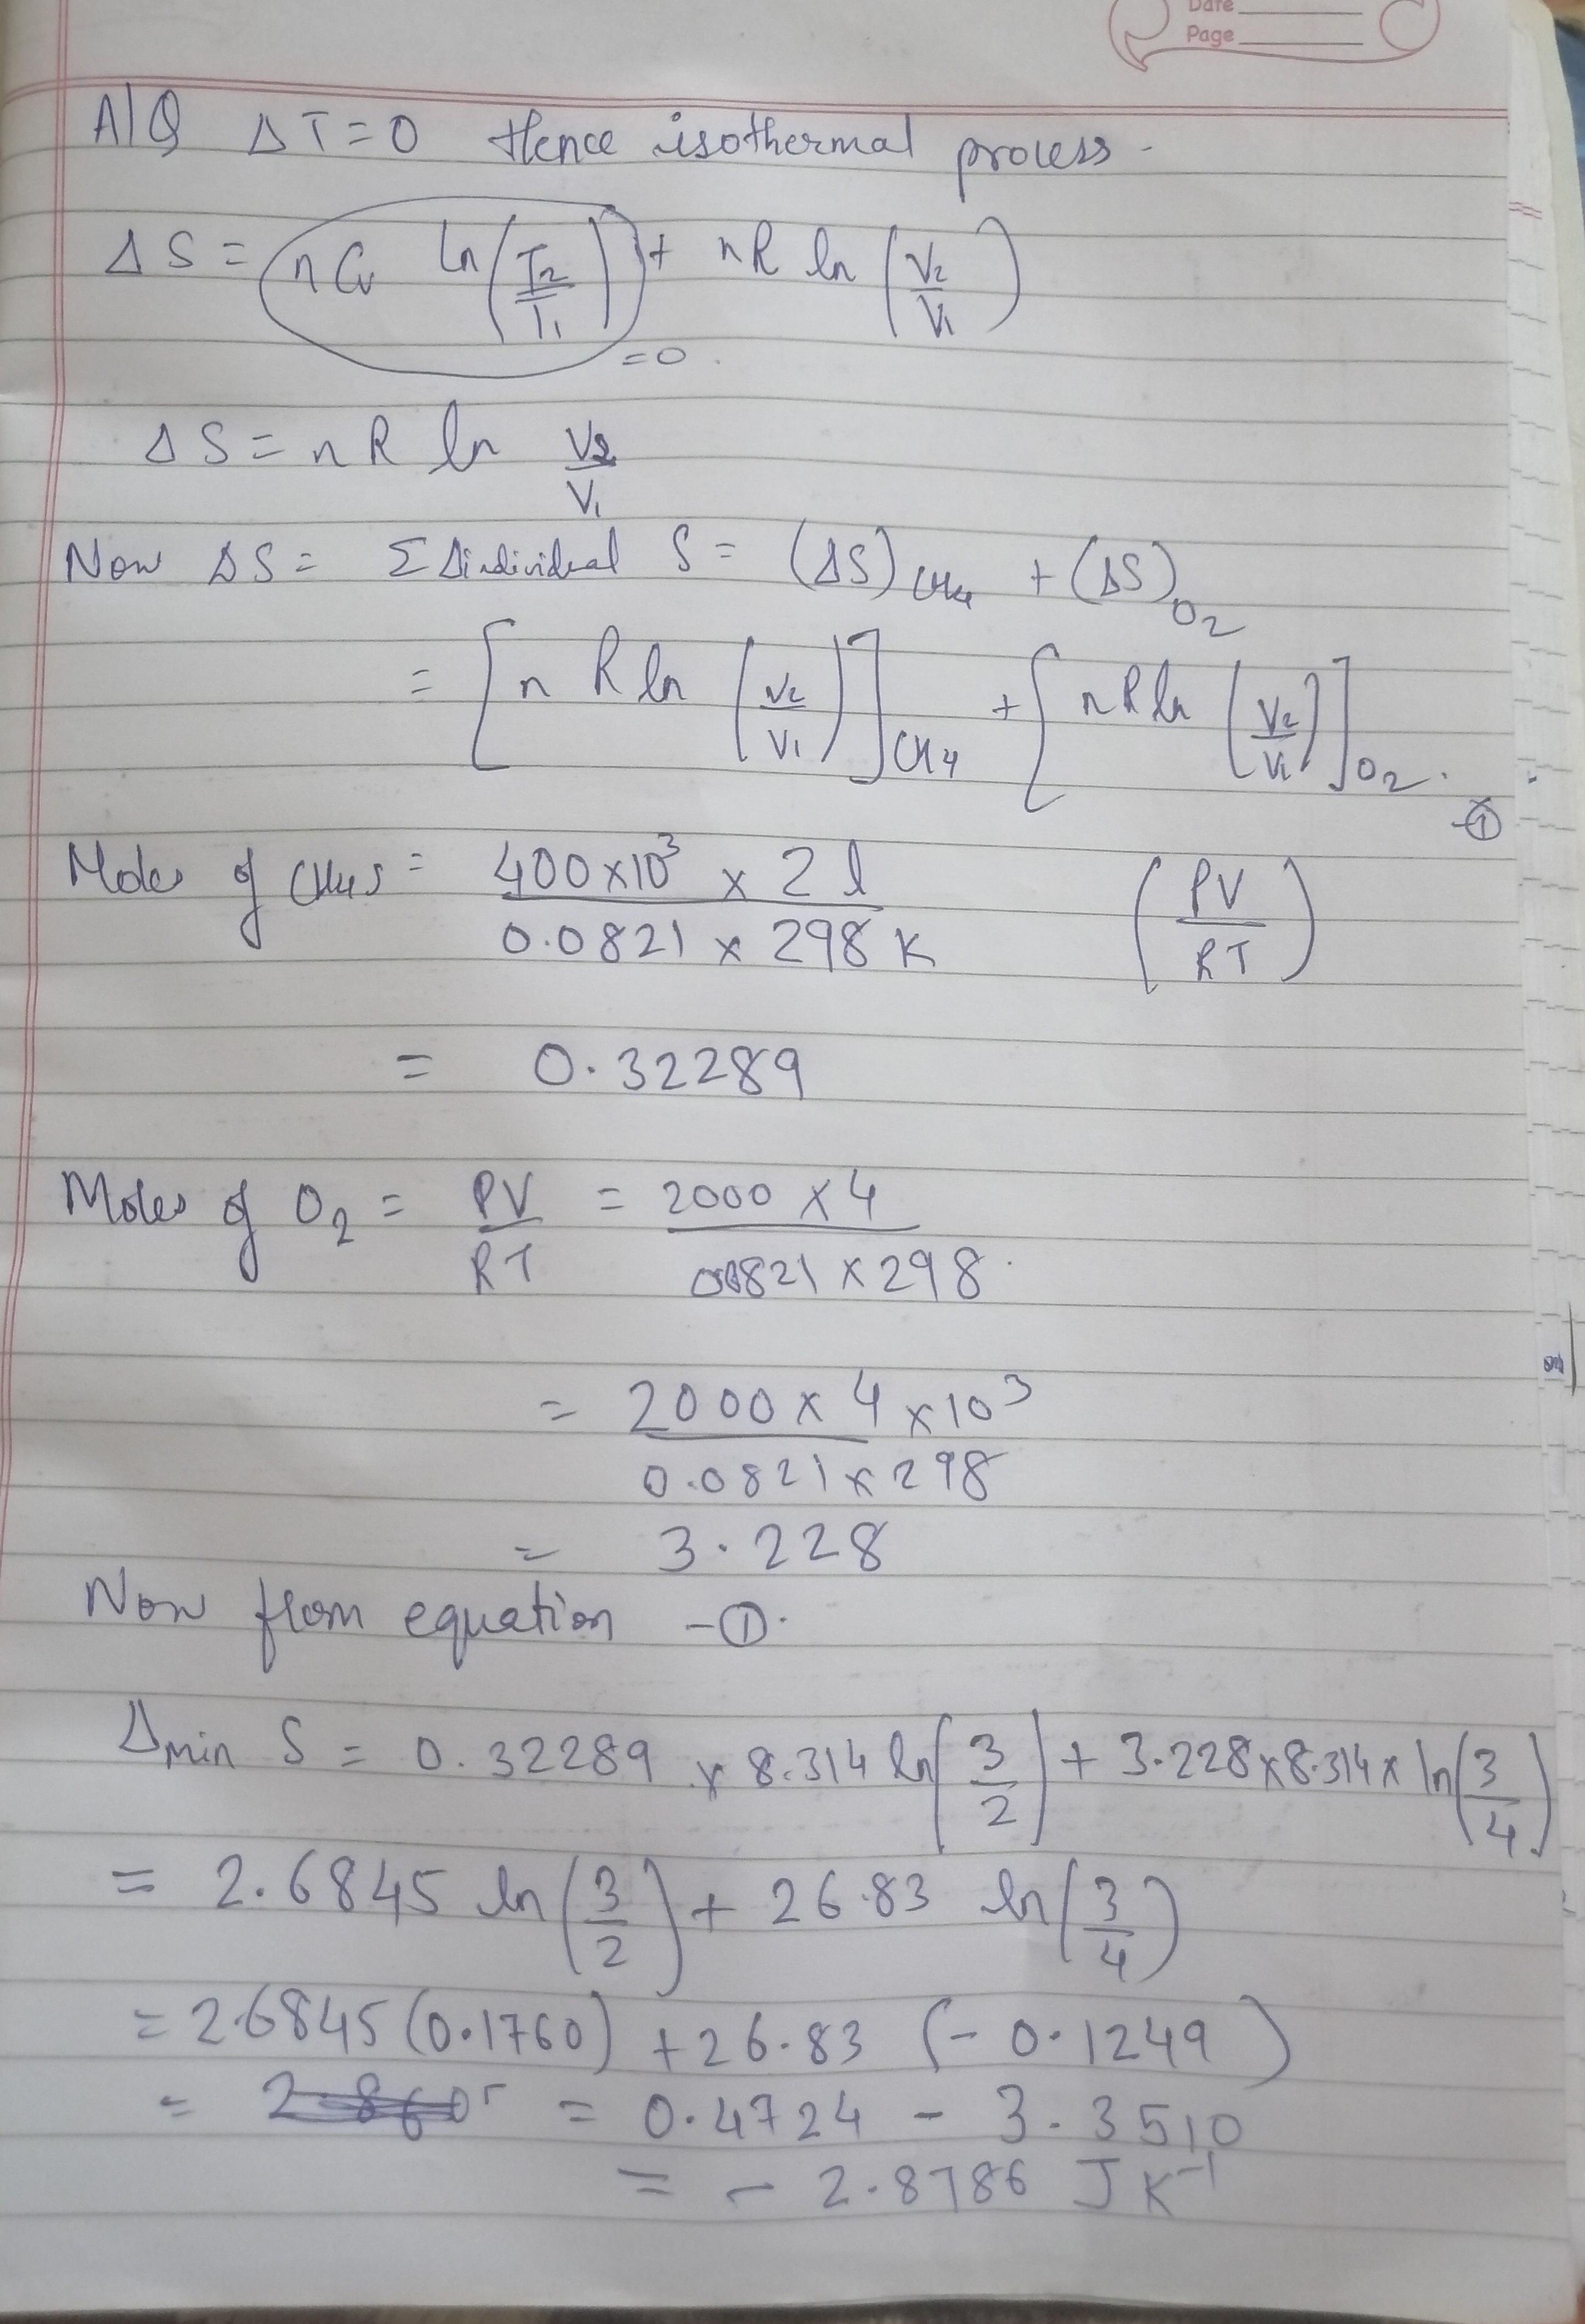 Date
Page
A/Q ΔT=0 Hence isothermal process.
ΔS = nCv ln(T2/T1) + nR ln(V2/V1)
=0.
ΔS = nR ln V2/V1
Now ΔS = Σ Δindividual S = (ΔS)CH4 + (ΔS)O2
= [n R ln (V2/V1)]CH4 + [nR ln (V2/V1)]O2. -①
Moles of CH4s = 400×10³ × 2 l / 0.0821 × 298 K (PV/RT)
= 0.32289
Moles of O2 = PV/RT = 2000 × 4 / 00821 × 298.
= 2000 × 4 × 10³ / 0.0821 × 298
= 3.228
Now from equation -①.
Δmin S = 0.32289 × 8.314 ln(3/2) + 3.228×8.314× ln(3/4)
= 2.6845 ln(3/2) + 26.83 ln(3/4)
= 2.6845(0.1760) + 26.83 (-0.1249)
= = 0.4724 - 3.3510
= - 2.8786 J K⁻¹